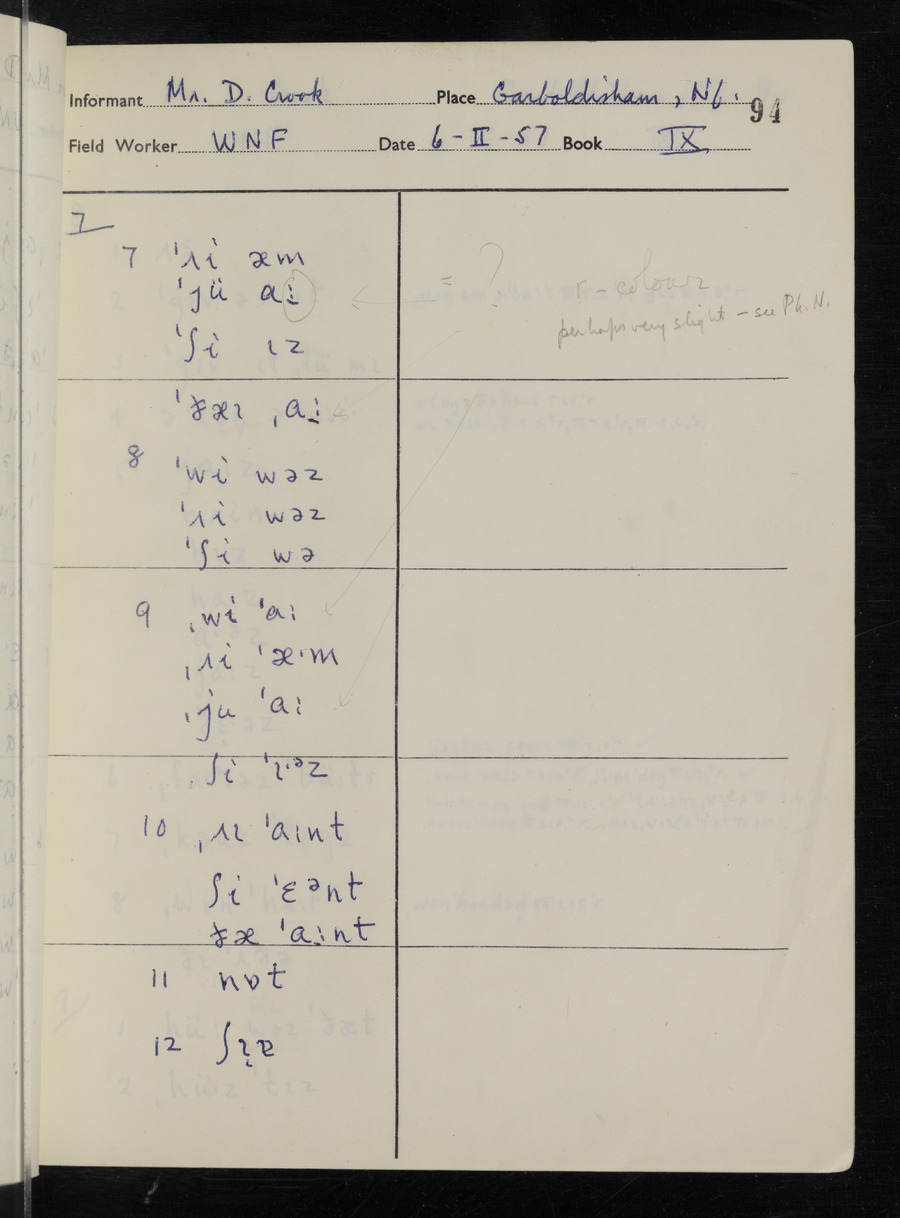 Informant Mr. D. Crook Place Garboldisham, Nf. 94
Field Worker WNF Date 6-II-57 Book IX
7
7 ˈʌi æm
ˈjü aː = ? r-colour
perhaps very slight – see Ph.N.
ˈʃi ɪz
ˈðæɪ ˌaː
8 ˈwi wəz
ˈʌi wəz
ˈʃi wə
9 ˌwi ˈaː
ˌʌi ˈæ·m
ˌju ˈaː
ʃi ˈɪ·əz
10 ˌʌɪ ˈaːnt
ʃi ˈɛənt
ðæ ˈaːnt
11 nɒt
12 ʃɪɐ